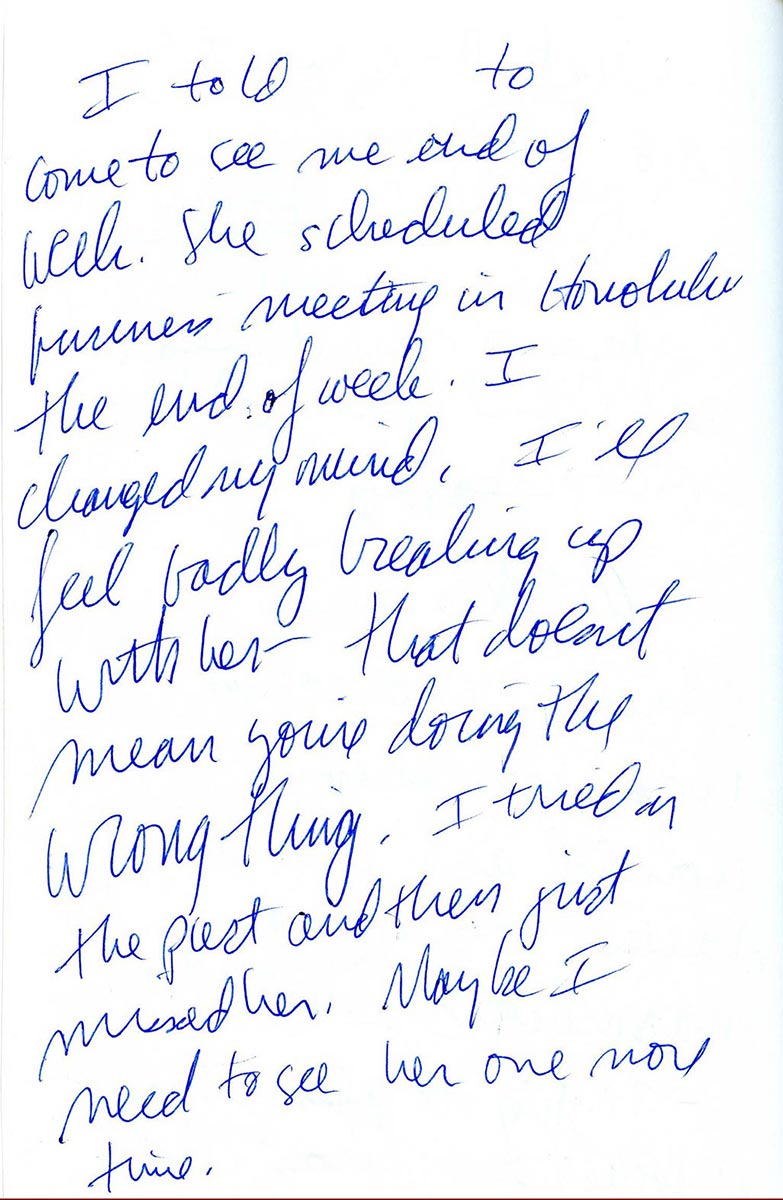 I told to
come to see me end of
week. She scheduled
business meeting in Honolulu
the end of week. I
changed my mind, I'll
feel badly breaking up
with her - that doesn't
mean you're doing the
wrong thing. I tried in
the past and then just
missed her. Maybe I
need to see her one more
time.